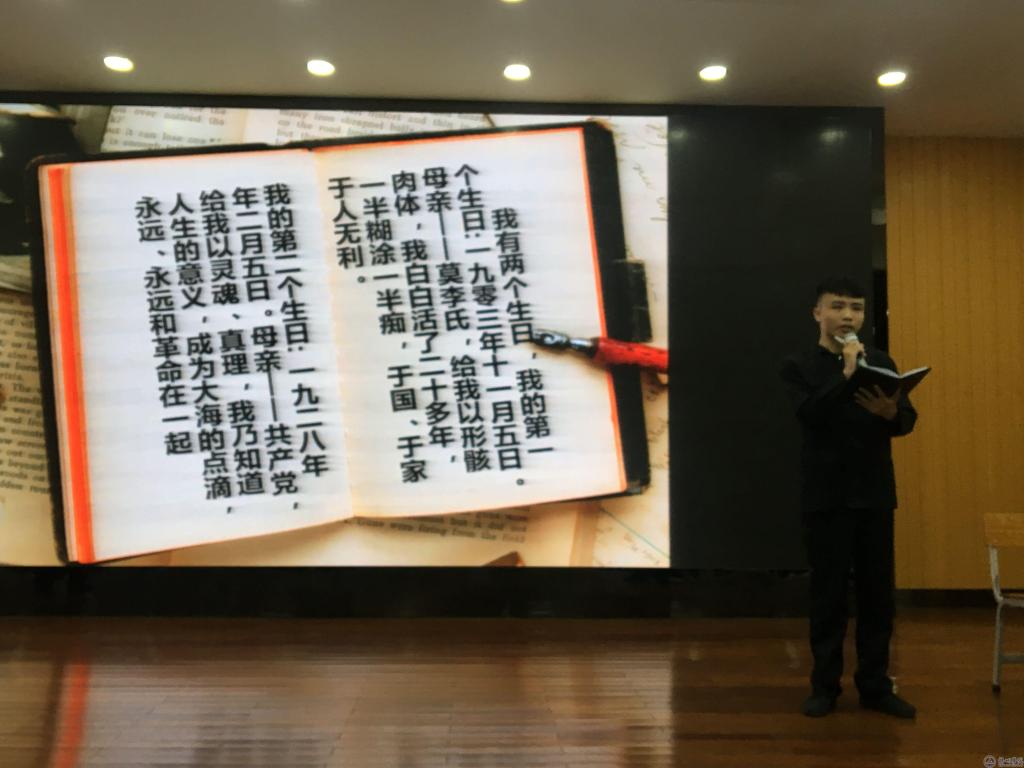 我有两个生日，我的第一
个生日：一九零三年十一月五日。
母亲——莫李氏，给我以形骸
肉体，我白白活了二十多年，
一半糊涂一半痴，于国、于家
于人无利。
我的第二个生日：一九二八年
年二月五日。母亲——共产党，
给我以灵魂、真理，我乃知道
人生的意义，成为大海的点滴，
永远、永远和革命在一起